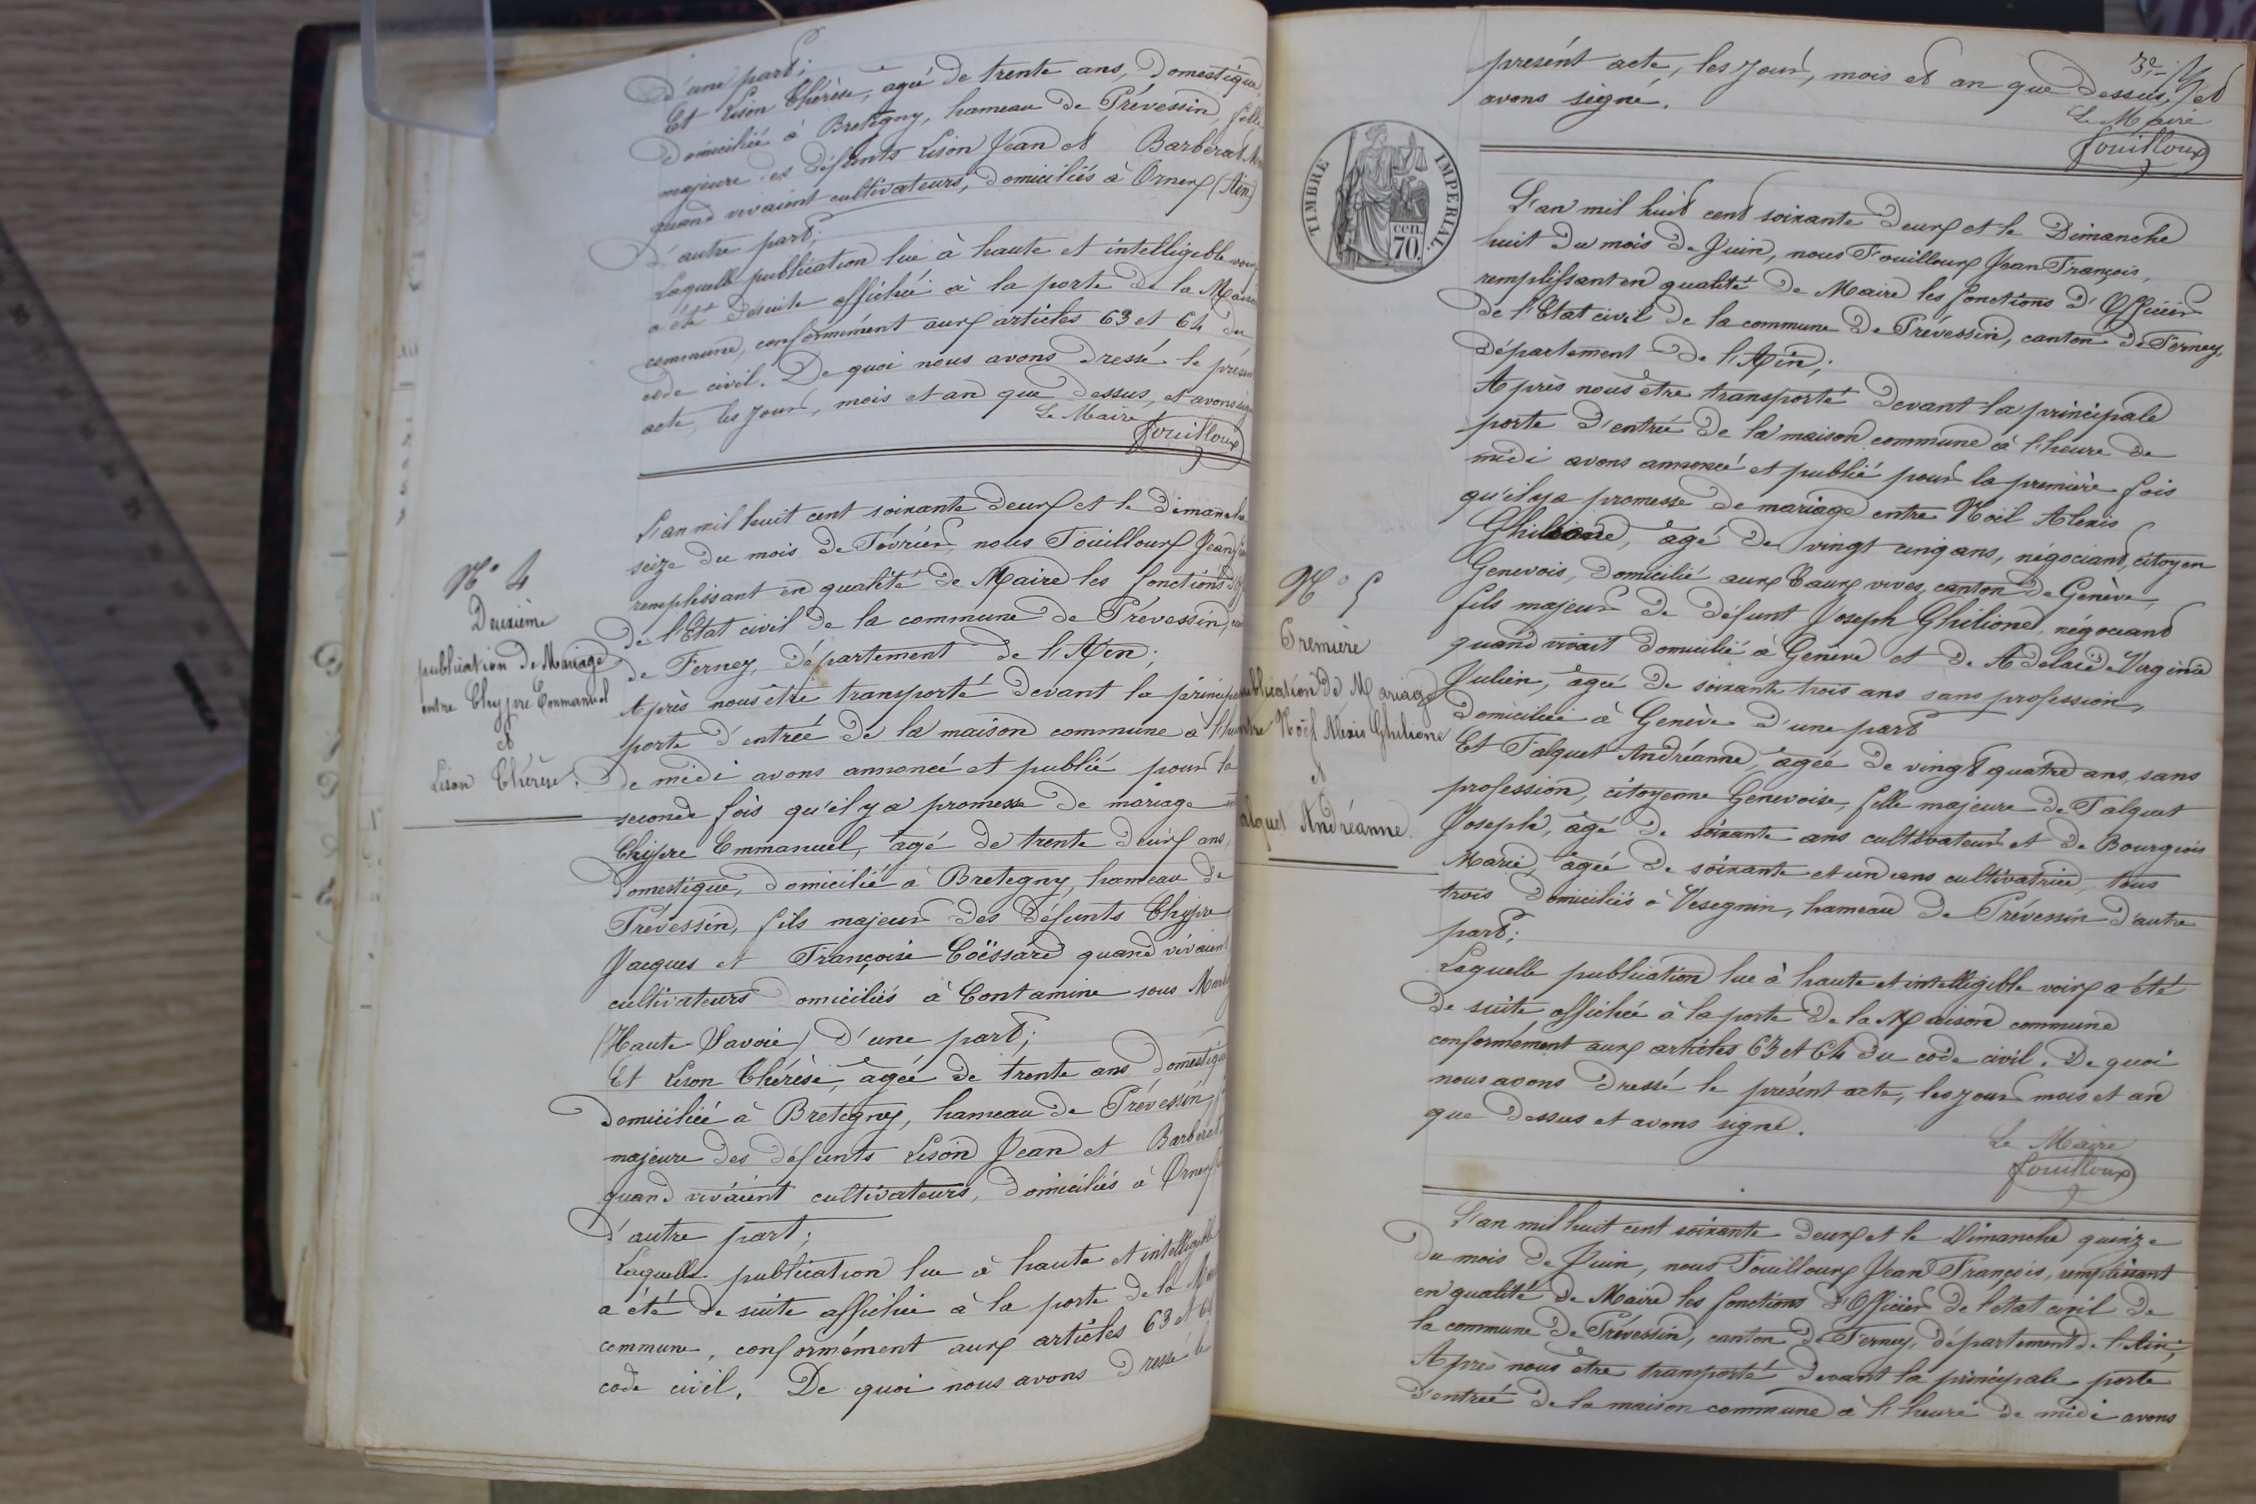 d'une part;
Et Lison Thérèse, agée de trente ans, domestique,
domiciliée à Bretigny, hameau de Prévessin, fille
majeure des défunts Lison Jean et Barberat
quand vivaient cultivateurs, domiciliés à Ornex (Ain)
d'autre part;
Laquelle publication lue à haute et intelligible voix
a été de suite affichée à la porte de la Maison
commune, conformément aux articles 63 et 64 du
code civil. De quoi nous avons dressé le présent
acte, les jour, mois et an que dessus, et avons signé
Le Maire
Fouilloux
N° 4
Deuxième
publication de Mariage
entre Chypre Emmanuel
et
Lison Thérèse.
L'an mil huit cent soixante deux et le dimanche
seize du mois de Février, nous Fouilloux Jean
remplissant en qualité de Maire les fonctions
de l'Etat civil de la commune de Prévessin,
de Ferney, département de l'Ain;
Après nous être transporté devant la principale
porte d'entrée de la maison commune à l'heure
de midi avons annoncé et publié pour la
seconde fois qu'il y a promesse de mariage
Chypre Emmanuel, agé de trente deux ans,
domestique, domicilié à Bretegny, hameau de
Prévessin, fils majeur des défunts Chypre
Jacques et Françoise Coëssard quand vivaient
cultivateurs domiciliés à Contamine sous
(Haute-Savoie) d'une part;
Et Lison Thérèse, agée de trente ans domestique
domiciliée à Bretegny, hameau de Prévessin,
majeure des défunts Lison Jean et Barberat
quand vivaient cultivateurs, domiciliés à Ornex
d'autre part;
Laquelle publication lue à haute et intelligible
a été de suite affichée à la porte de la
commune, conformément aux articles 63 et 64
code civil. De quoi nous avons dressé le
présent acte, les jour, mois et an que dessus, et
avons signé.
Le Maire
Fouilloux
TIMBRE IMPERIAL
70 cen.
N° 5
Première
publication de Mariage
entre Noël Alexis Ghilione
et
Falquet Andréanne.
L'an mil huit cent soixante deux et le Dimanche
huit du mois de Juin, nous Fouilloux Jean François,
remplissant en qualité de Maire les fonctions d'Officier
de l'Etat civil de la commune de Prévessin, canton de Ferney,
département de l'Ain;
Après nous être transporté devant la principale
porte d'entrée de la maison commune à l'heure de
midi avons annoncé et publié pour la première fois
qu'il y a promesse de mariage entre Noël Alexis
Ghilione, agé de vingt cinq ans, négociant, citoyen
Genevois, domicilié aux Eaux vives, canton de Genève,
fils majeur de défunt Joseph Ghilione, négociant
quand vivait domicilié à Genève et de Adelaïde Virginie
Julien, agée de soixante trois ans sans profession,
domiciliée à Genève d'une part
Et Falquet Andréanne, agée de vingt quatre ans, sans
profession, citoyenne Genevoise, fille majeure de Falquet
Joseph, agé de soixante ans cultivateur et de Bourgeois
Marie, agée de soixante et un ans cultivatrice, tous
trois domiciliés à Vesegnin, hameau de Prévessin d'autre
part;
Laquelle publication lue à haute et intelligible voix a été
de suite affichée à la porte de la Maison commune
conformément aux articles 63 et 64 du code civil. De quoi
nous avons dressé le présent acte, les jour mois et an
que dessus et avons signé.
Le Maire
Fouilloux
L'an mil huit cent soixante deux et le Dimanche quinze
du mois de Juin, nous Fouilloux Jean François, remplissant
en qualité de Maire les fonctions d'Officier de l'état civil de
la commune de Prévessin, canton de Ferney, département de l'Ain;
Après nous être transporté devant la principale porte
d'entrée de la maison commune à l'heure de midi avons